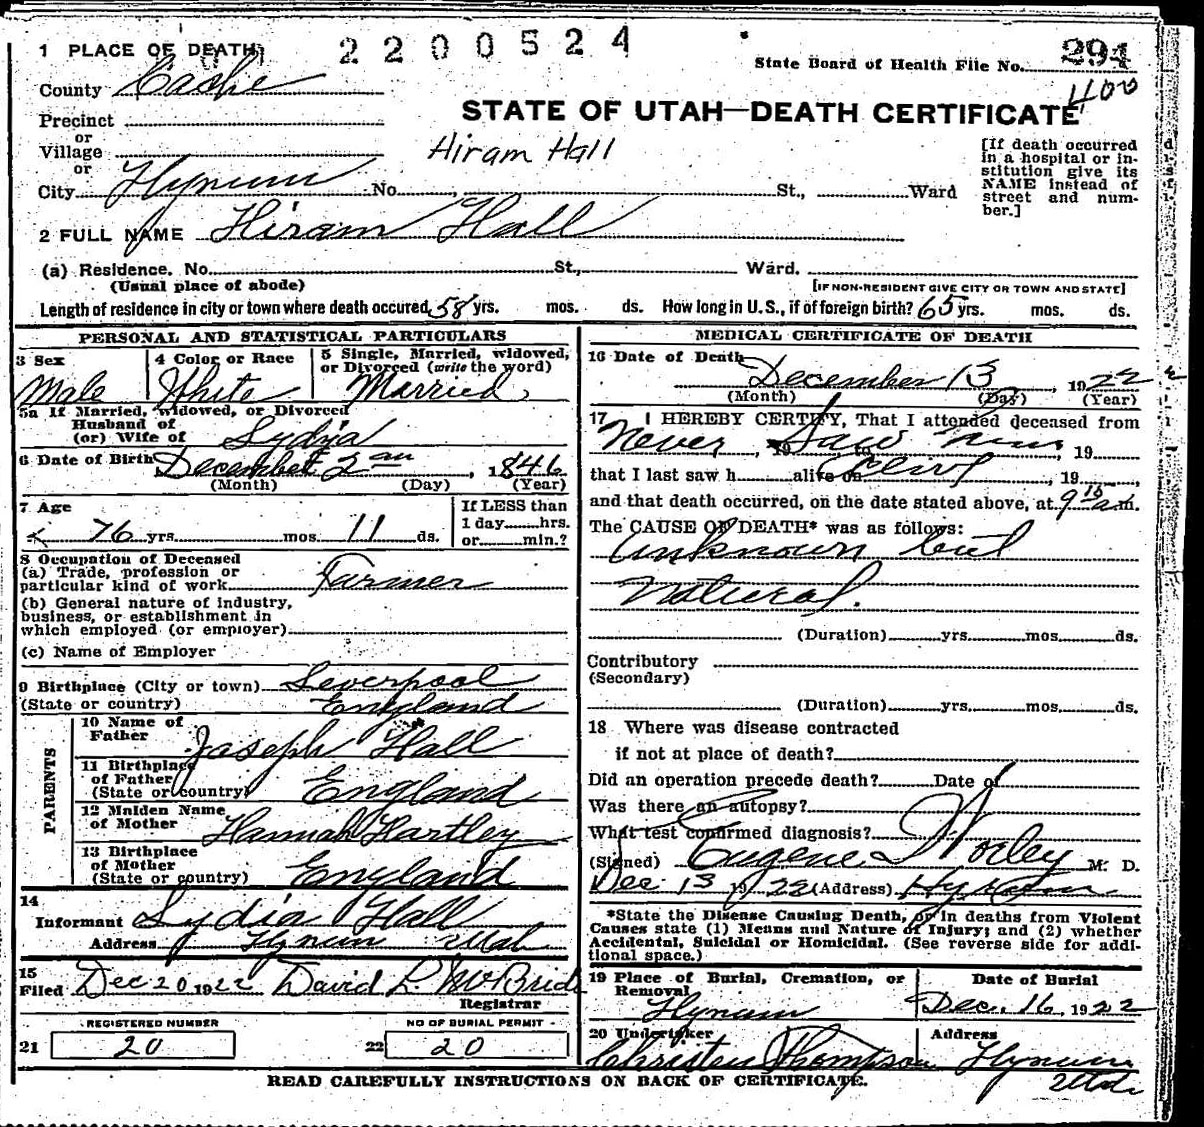 1 PLACE OF DEATH 2200524 294
State Board of Health File No.
County Cache 400
STATE OF UTAH—DEATH CERTIFICATE
Precinct
or
Village Hiram Hall
or
City Hyrum No. St., Ward
[If death occurred
in a hospital or in-
stitution give its
NAME instead of
street and num-
ber.]
2 FULL NAME Hiram Hall
(a) Residence. No. St., Ward.
(Usual place of abode) [IF NON-RESIDENT GIVE CITY OR TOWN AND STATE]
Length of residence in city or town where death occured 58 yrs. mos. ds. How long in U.S., if of foreign birth? 65 yrs. mos. ds.
PERSONAL AND STATISTICAL PARTICULARS
3 Sex 4 Color or Race 5 Single, Married, widowed,
or Divorced (write the word)
Male White Married
5a If Married, widowed, or Divorced
Husband of
(or) Wife of Lydia
6 Date of Birth December 2nd, 1846
(Month) (Day) (Year)
7 Age If LESS than
76 yrs. mos. 11 ds. 1 day hrs.
or min.?
8 Occupation of Deceased
(a) Trade, profession or
particular kind of work Farmer
(b) General nature of industry,
business, or establishment in
which employed (or employer)
(c) Name of Employer
9 Birthplace (City or town) Leverpool
(State or country) England
PARENTS
10 Name of
Father Joseph Hall
11 Birthplace
of Father
(State or country) England
12 Maiden Name
of Mother Hannah Hartley
13 Birthplace
of Mother
(State or country) England
14
Informant Lydia Hall
Address Hyrum Utah
15
Filed Dec 20 1922 David L. McBride
Registrar
REGISTERED NUMBER NO OF BURIAL PERMIT
21 20 22 20
MEDICAL CERTIFICATE OF DEATH
16 Date of Death December 13, 1922
(Month) (Day) (Year)
17 I HEREBY CERTIFY, That I attended deceased from
Never, 19 Saw to him, 19
that I last saw h alive on Alive, 19
and that death occurred, on the date stated above, at 9 15 a.m.
The CAUSE OF DEATH* was as follows:
Unknown but
Natural.
(Duration) yrs. mos. ds.
Contributory
(Secondary)
(Duration) yrs. mos. ds.
18 Where was disease contracted
if not at place of death?
Did an operation precede death? Date of
Was there an autopsy?
What test confirmed diagnosis?
(Signed) Eugene Worley M. D.
Dec 13 1922 (Address) Hyrum
*State the Disease Causing Death, or in deaths from Violent
Causes state (1) Means and Nature of Injury; and (2) whether
Accidental, Suicidal or Homicidal. (See reverse side for addi-
tional space.)
19 Place of Burial, Cremation, or Date of Burial
Removal
Hyrum Dec. 16, 1922
20 Undertaker Address
Christen Thompson Hyrum
Utah
READ CAREFULLY INSTRUCTIONS ON BACK OF CERTIFICATE.